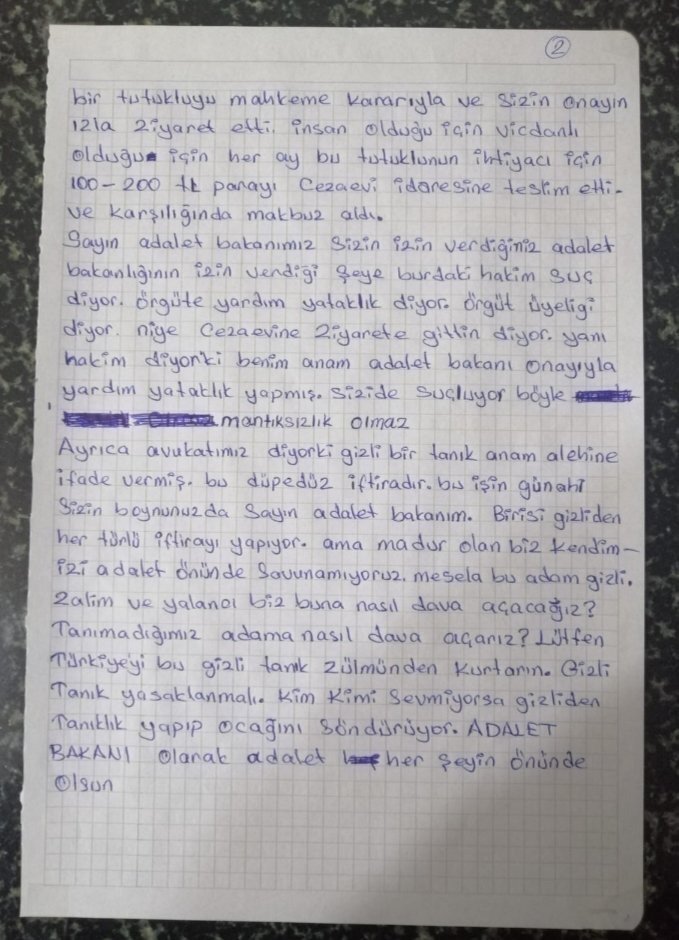 2
bir tutukluyu mahkeme kararıyla ve sizin onayın
ızla ziyaret etti. insan olduğu için vicdanlı
olduğu için her ay bu tutuklunun ihtiyacı için
100-200 tL parayı cezaevi idaresine teslim etti.
ve karşılığında makbuz aldı.
Sayın adalet bakanımız sizin izin verdiğiniz adalet
bakanlığının izin verdiği şeye burdaki hakim suç
diyor. örgüte yardım yataklık diyor. örgüt üyeligi
diyor. niye cezaevine ziyarete gittin diyor. yanı
hakim diyor'ki benim anam adalet bakanı onayıyla
yardım yataklık yapmış. sizide suçluyor böyle
mantıksızlık olmaz
Ayrıca avukatımız diyorki gizli bir tanık anam alehine
ifade vermiş. bu düpedüz iftiradır. bu işin günahı
sizin boynunuzda Sayın adalet bakanım. Birisi gizliden
her türlü iftirayı yapıyor. ama madur olan biz kendim-
izi adalet önünde savunamıyoruz. mesela bu adam gizli.
zalim ve yalancı biz buna nasıl dava açacağız?
Tanımadığımız adama nasıl dava açarız? Lütfen
Türkiye'yi bu gizli tanık zülmünden kurtarın. Gizli
Tanık yasaklanmalı. Kim Kimi Sevmiyorsa gizliden
Tanıklık yapıp ocağını söndürüyor. ADALET
BAKANI olarak adalet her şeyin önünde
olsun